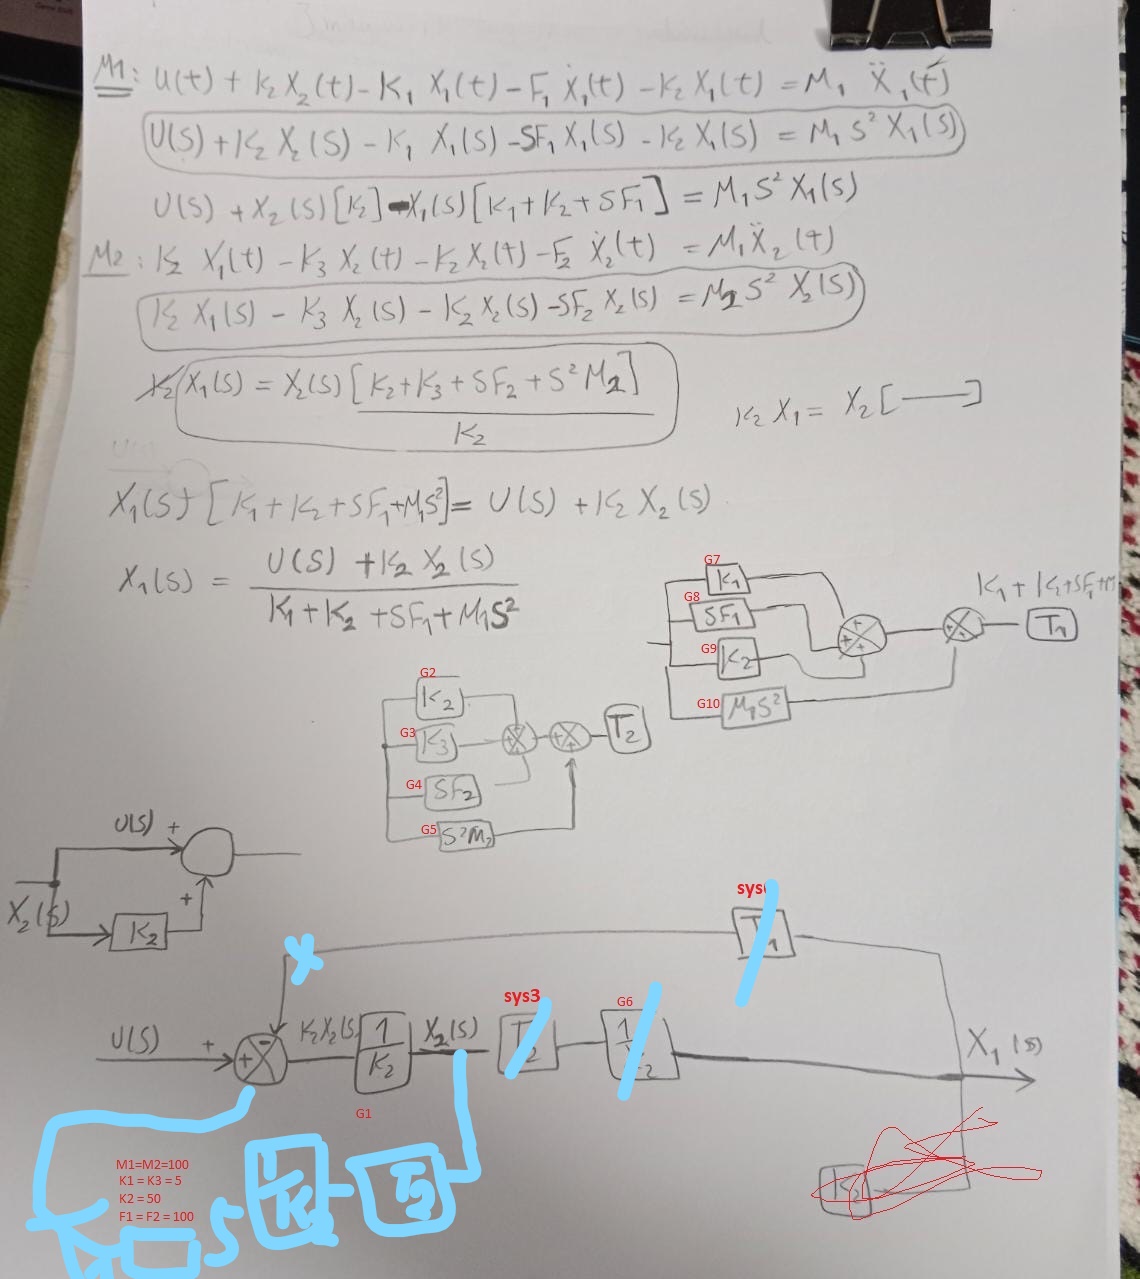 M1: U(t) + K2 X2(t) - K1 X1(t) - F1 Ẋ1(t) - K2 X1(t) = M1 Ẍ1(t)
U(S) + K2 X2(S) - K1 X1(S) - SF1 X1(S) - K2 X1(S) = M1 S² X1(S)
U(S) + X2(S) [K2] - X1(S) [K1 + K2 + SF1] = M1 S² X1(S)
M2: K2 X1(t) - K3 X2(t) - K2 X2(t) - F2 Ẋ2(t) = M1 Ẍ2(t)
K2 X1(S) - K3 X2(S) - K2 X2(S) - SF2 X2(S) = M2 S² X2(S)
X1(S) = X2(S) [K2 + K3 + SF2 + S² M2]
K2
K2 X1 = X2 [ — ]
X1(S) [K1 + K2 + SF1 + M1S²] = U(S) + K2 X2(S)
X1(S) = U(S) + K2 X2(S)
K1 + K2 + SF1 + M1S²
G7
K1
K1 + K2 + SF1 + M
G8
SF1
T1
G9
K2
G10
M1S²
G2
K2
G3
K3
T2
G4
SF2
G5
S²M2
U(S) +
X2(S)
+
K2
sys
U(S) +
K2X2(S)
1
K2
X2(S)
sys3
G6
X1(S)
G1
M1=M2=100
K1 = K3 = 5
K2 = 50
F1 = F2 = 100